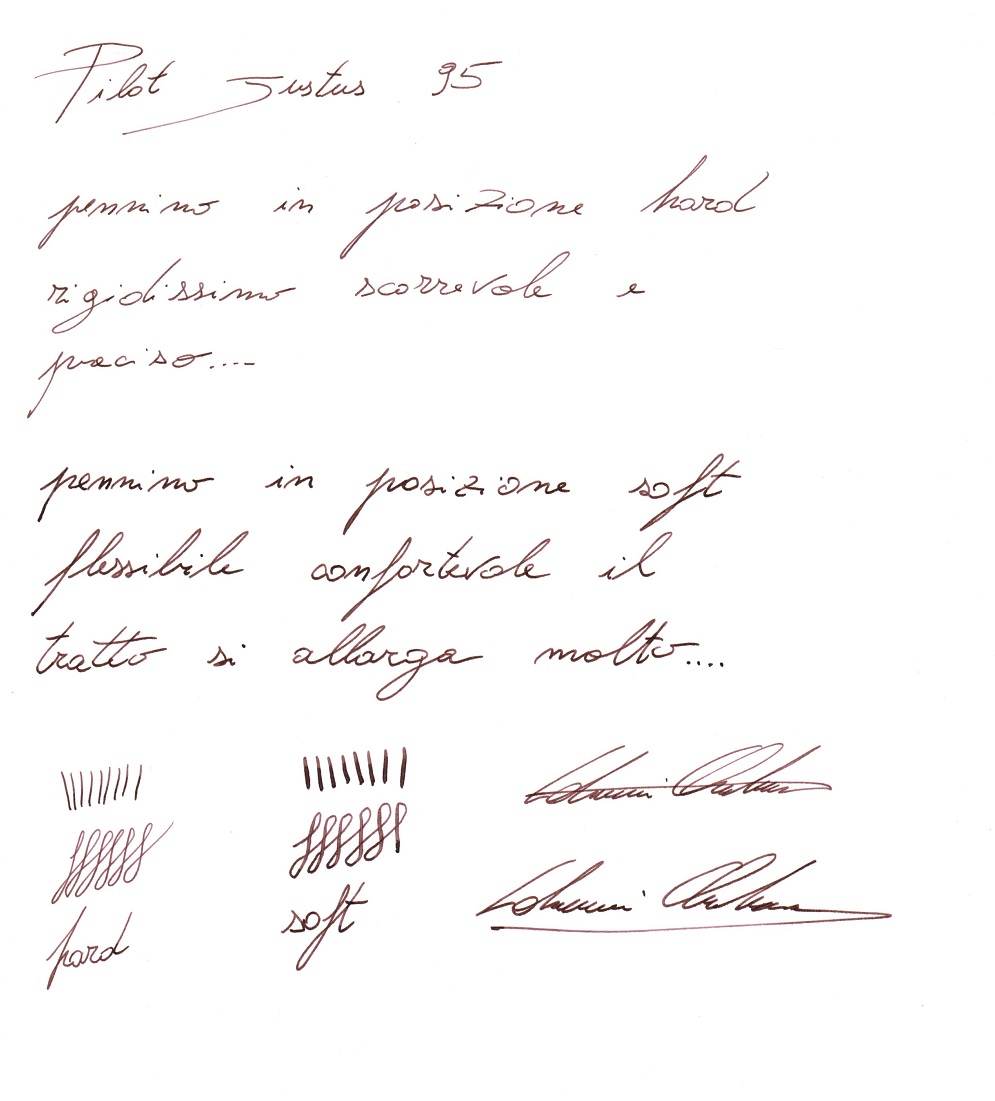 Pilot Justus 95
pennino in posizione hard
rigidissimo scorrevole e
preciso....
pennino in posizione soft
flessibile confortevole il
tratto si allarga molto....
hard
soft